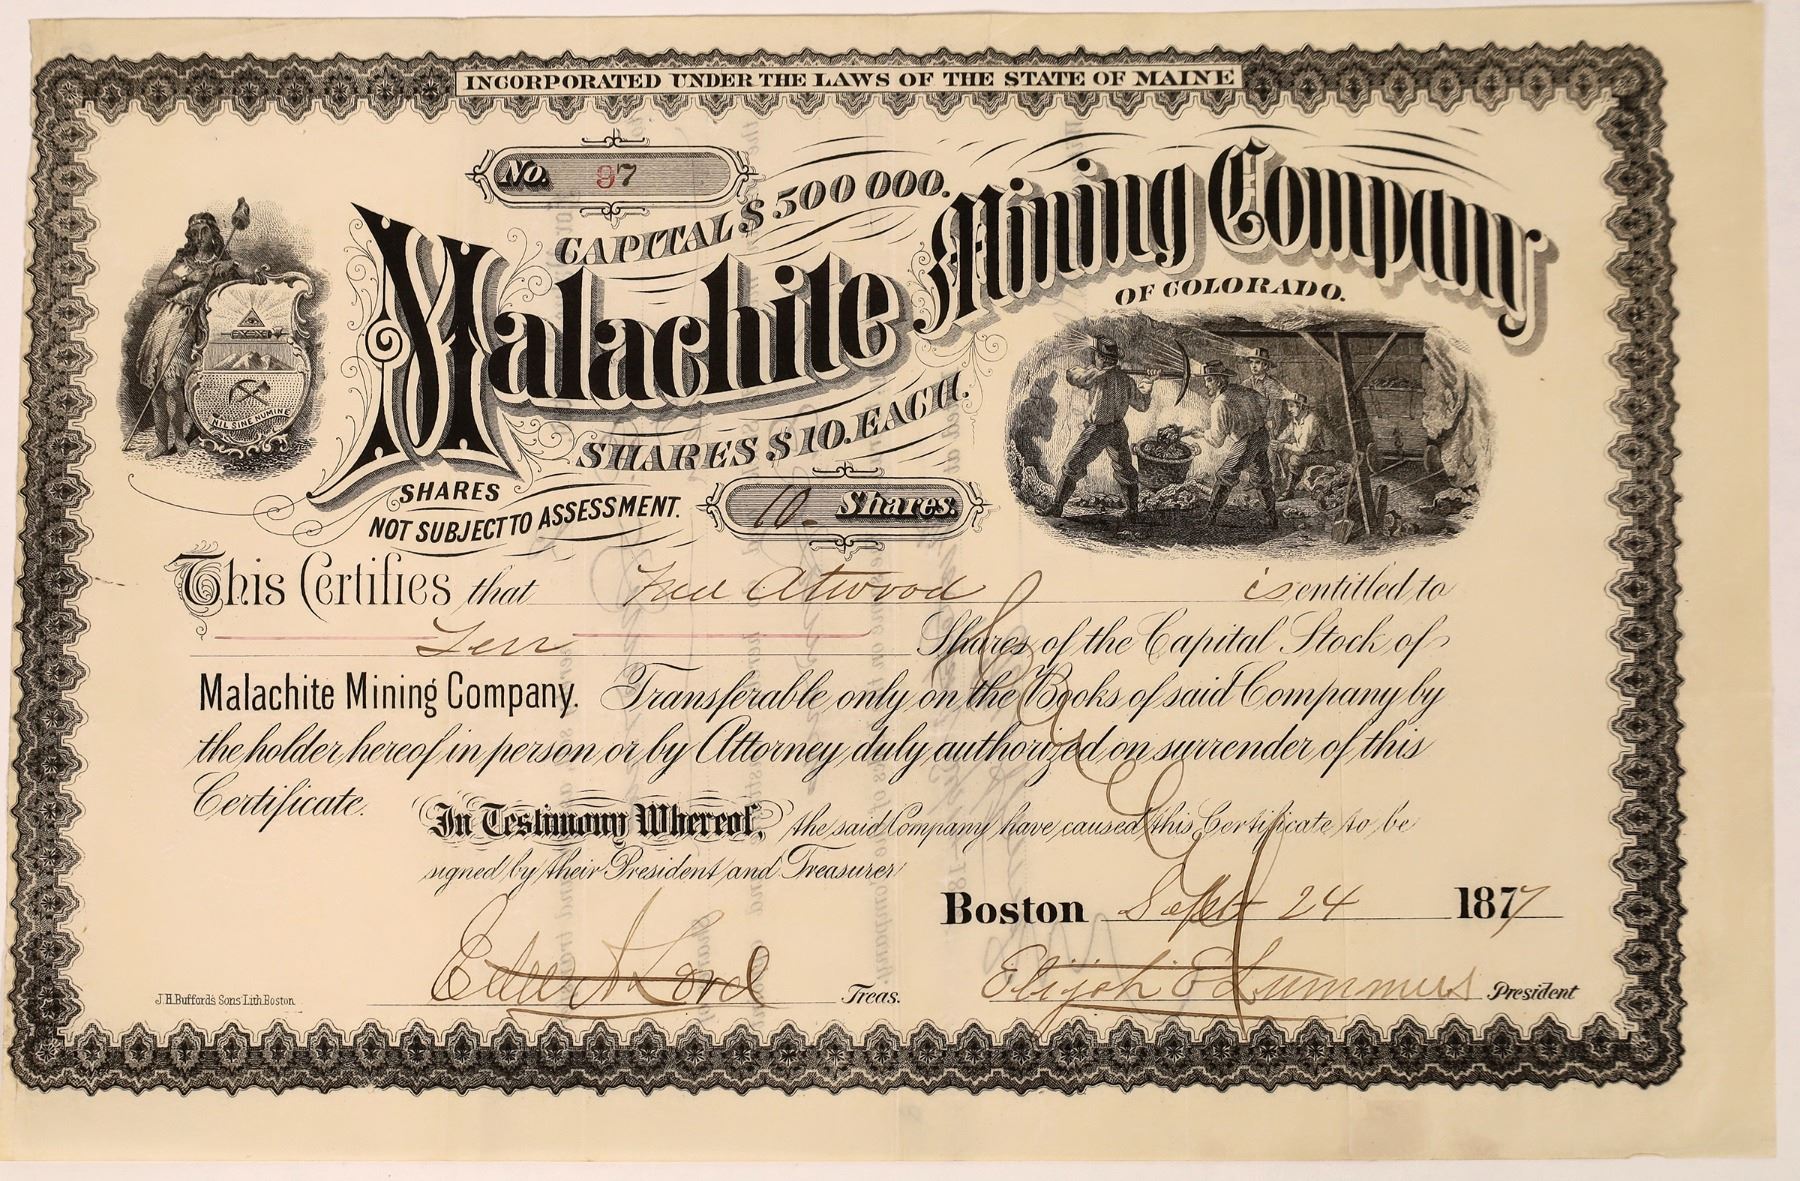 INCORPORATED UNDER THE LAWS OF THE STATE OF MAINE
No. 97
CAPITAL $500 000.
Malachite Mining Company
OF COLORADO.
SHARES $10. EACH.
NIL SINE NUMINE
SHARES
NOT SUBJECT TO ASSESSMENT.
10. Shares.
This Certifies that Atwood is entitled to
Ten Shares of the Capital Stock of
Malachite Mining Company. Transferable only on the Books of said Company by
the holder hereof in person or by Attorney duly authorized on surrender of this
Certificate.
In Testimony Whereof, the said Company have caused this Certificate to be
signed by their President and Treasurer
Boston Sept 24 1877
Lord Treas.
Elijah President
J.H. Bufford's Sons Lith. Boston.